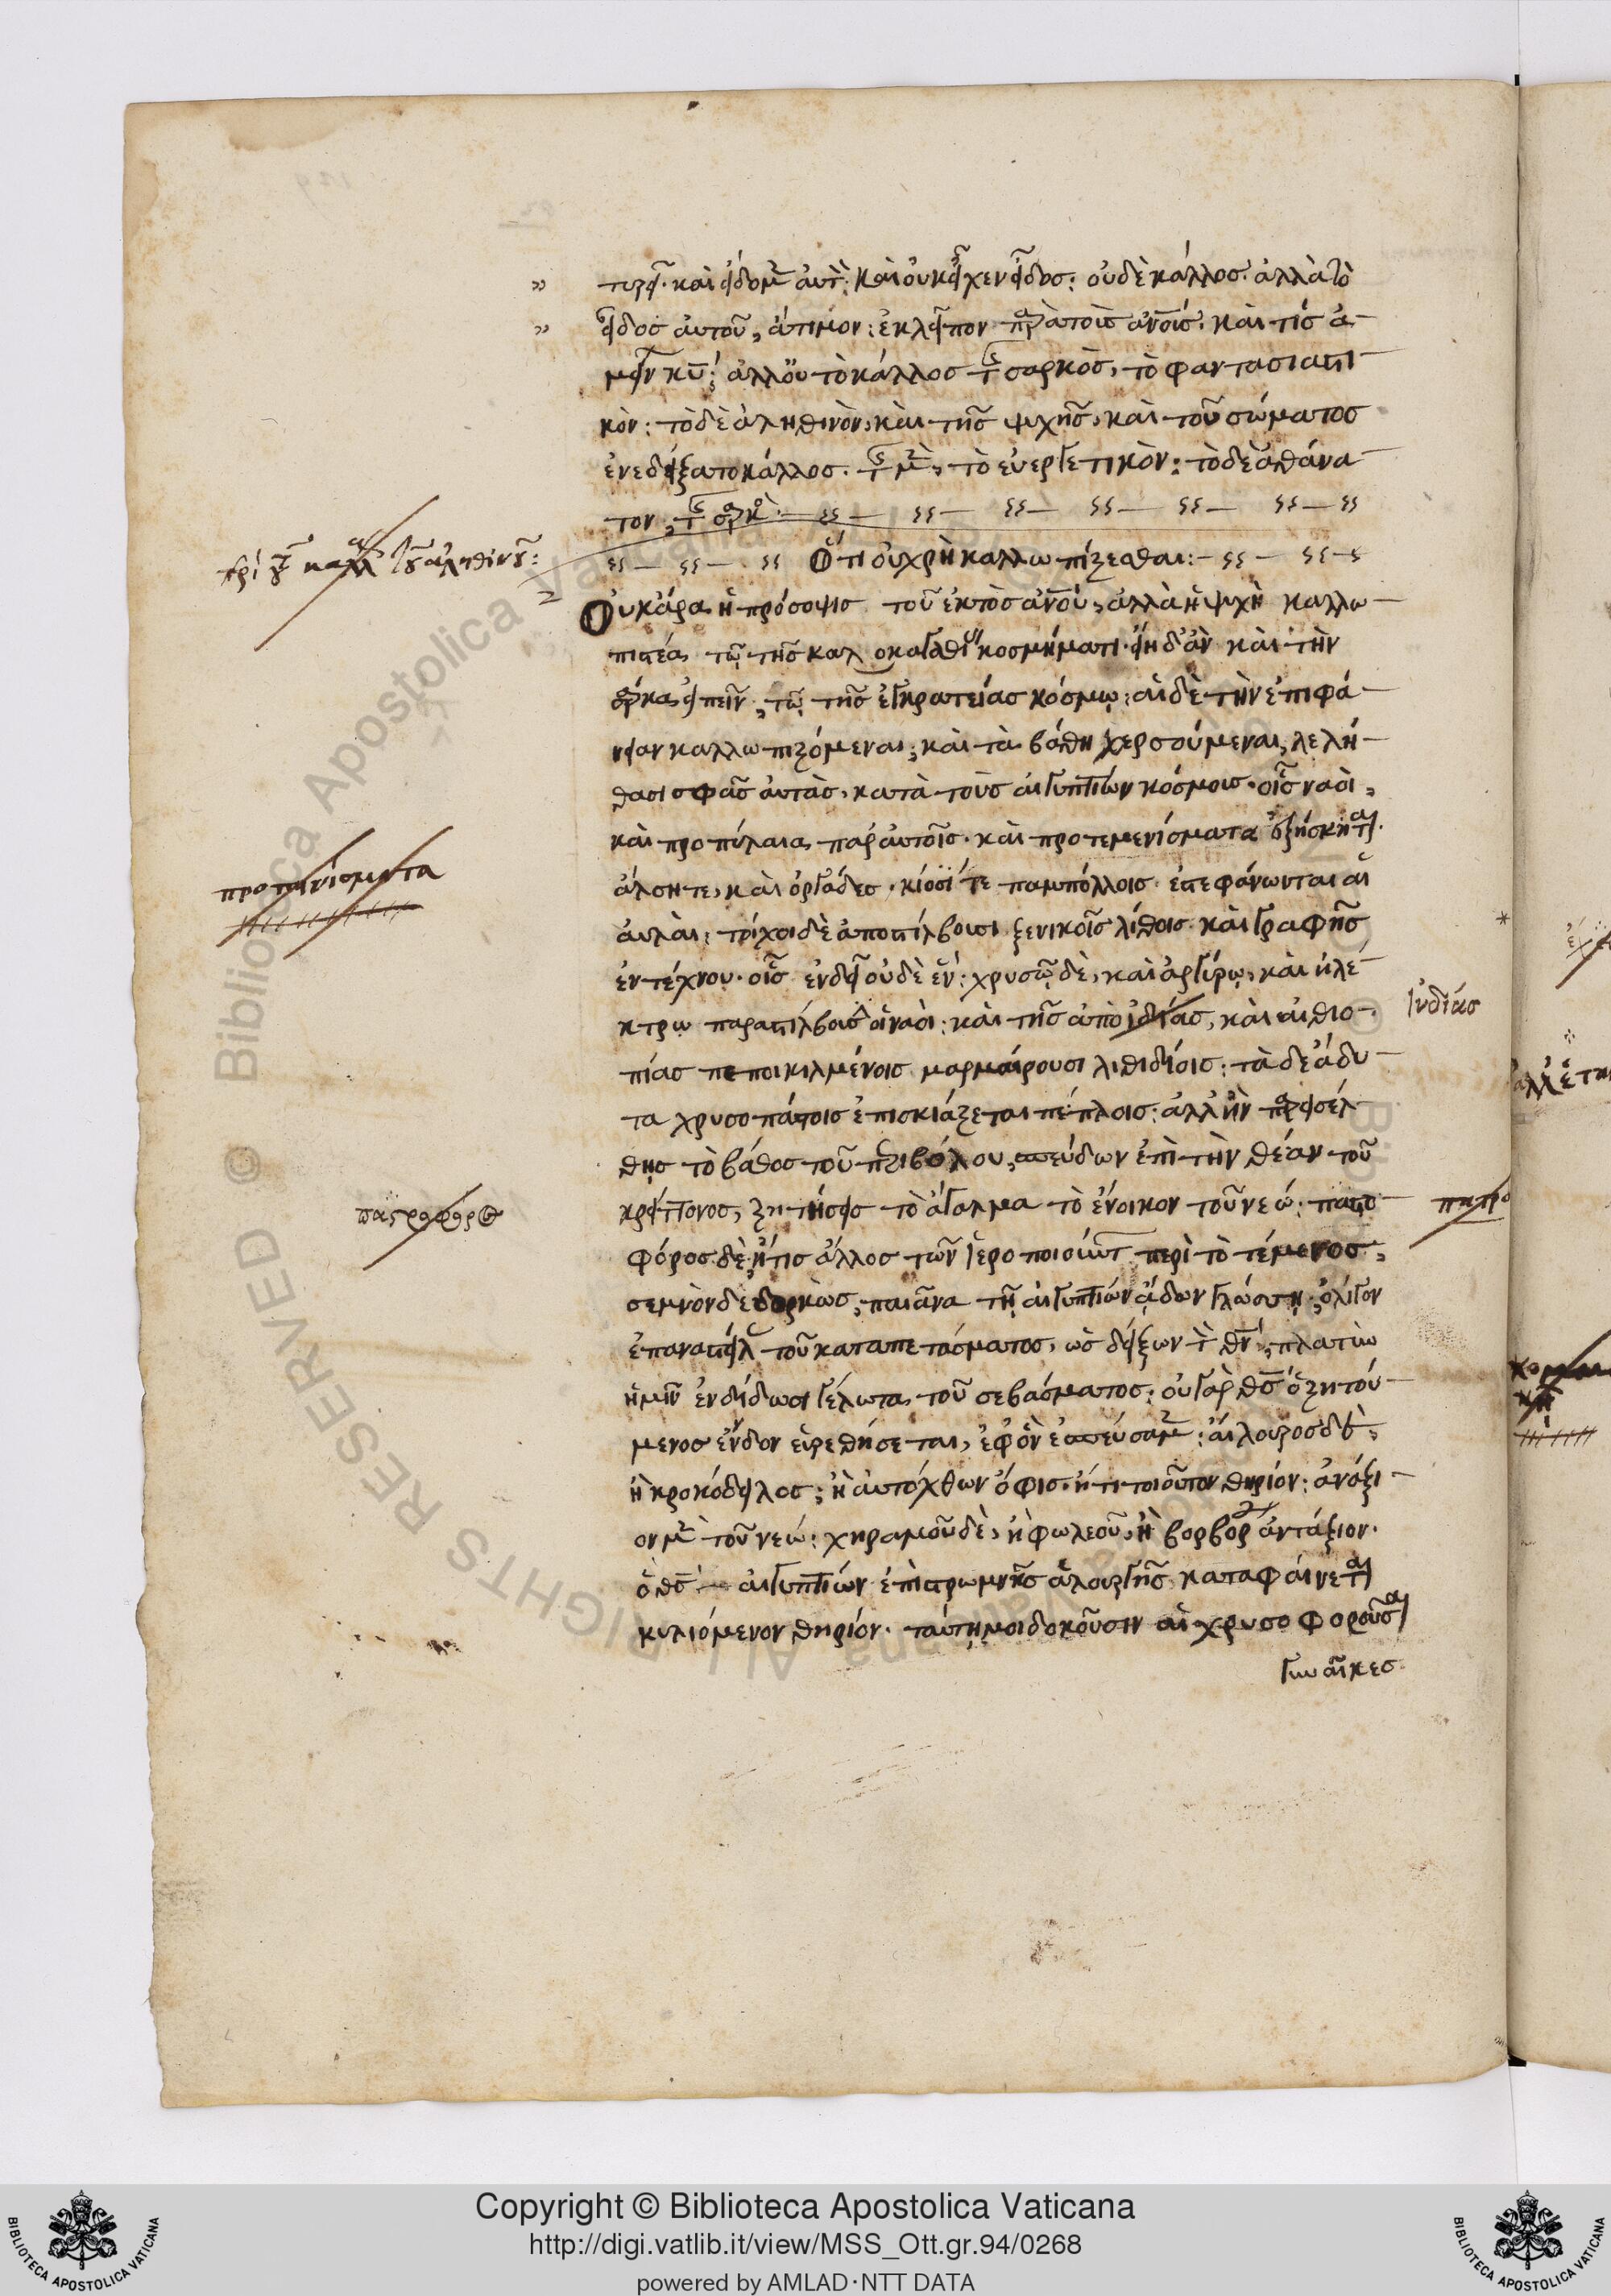 τυρεῖ· καὶ εἴδομεν αὐτὸν· καὶ οὐκ εἶχεν εἶδος· οὐδὲ κάλλος· ἀλλὰ τὸ
εἶδος αὐτοῦ, ἄτιμον· ἐκλεῖπον παρὰ τοῖς ἀνοις· καὶ τίς ἀ-
μείνων κυ; ἀλλ' οὐ τὸ κάλλος τῆς σαρκὸς, τὸ φαντασιαστι-
κὸν· τὸ δὲ ἀληθινὸν, καὶ τῆς ψυχῆς, καὶ τοῦ σώματος
ἐνεδείξατο κάλλος· τῆς μὲν, τὸ εὐεργετικὸν· τὸ δὲ ἀθάνα-
τον, τῆς σαρκὸς·
Ὅτι οὐ χρὴ καλλωπίζεσθαι:-
Οὐκ ἄρα ἡ πρόσοψις τοῦ ἐκτὸς ἀνου, ἀλλὰ ἡ ψυχὴ καλλω-
πιστέα τῷ τῆς καλοκαγαθίας κοσμήματι· εἴη δ' ἂν καὶ τὴν
σάρκα εἰπεῖν, τῷ τῆς ἐγκρατείας κόσμῳ· αἱ δὲ τὴν ἐπιφά-
νειαν καλλωπιζόμεναι, καὶ τὰ βάθη χερσούμεναι, λελή-
θασι σφᾶς αὐτὰς, κατὰ τοὺς αἰγυπτίων κόσμοις· οἷς ναοὶ,
καὶ προπύλαια παρ' αὐτοῖς· καὶ προτεμενίσματα ἐξήσκηται·
ἄλση τε, καὶ ὀργάδες· κίοσί τε παμπόλλοις ἐστεφάνωνται αἱ
αὐλαὶ· τοῖχοι δὲ ἀποστίλβουσι ξενικοῖς λίθοις καὶ γραφῆς
ἐντέχνου· οἷς ἐνδεῖ οὐδὲ ἕν· χρυσῷ δὲ, καὶ ἀργύρῳ, καὶ ἠλέ-
κτρῳ παραστίλβουσιν οἱ ναοὶ· καὶ τῆς ἀπὸ ἰδίας, καὶ αἰθιο-
πίας πεποικιλμένοις μαρμαίρουσι λιθιδίοις· τὰ δὲ ἄδυ-
τα χρυσοπάστοις ἐπισκιάζεται πέπλοις· ἀλλ' ἢν παρεισέλ-
θῃς τὸ βάθος τοῦ περιβόλου, σπεύδων ἐπὶ τὴν θέαν τοῦ
κρείττονος, ζητήσεις τὸ ἄγαλμα τὸ ἔνοικον τοῦ νεώ· παστο-
φόρος δὲ, ἤ τις ἄλλος τῶν ἱεροποιούντων περὶ τὸ τέμενος,
σεμνὸν δεδορκὼς, παιᾶνα τῇ αἰγυπτίων ᾄδων γλώσσῃ, ὀλίγον
ἐπαναστείλας τοῦ καταπετάσματος, ὡς δείξων τὸν θν, πλατὺν
ἡμῖν ἐνδίδωσι γέλωτα τοῦ σεβάσματος· οὐ γὰρ θς ὁ ζητού-
μενος ἔνδον εὑρεθήσεται, ἐφ' ὃν ἐσπεύσαμεν· αἴλουρος δὲ,
ἢ κροκόδειλος, ἢ αὐτόχθων ὄφις· ἤ τι τοιοῦτον θηρίον· ἀνάξι-
ον μὲν τοῦ νεώ· χηραμοῦ δὲ, ἢ φωλεοῦ, ἢ βορβόρου ἀντάξιον·
ὁ θς αἰγυπτίων ἐπὶ στρωμνῆς ἁλουργῆς καταφαίνεται
κυλιόμενον θηρίον· ταύτῃ μοι δοκοῦσιν αἱ χρυσοφοροῦσαι
γυναῖκες
προτεμενίσματα
παστοφόρος
ἰνδίας
Copyright © Biblioteca Apostolica Vaticana
http://digi.vatlib.it/view/MSS_Ott.gr.94/0268
powered by AMLAD·NTT DATA